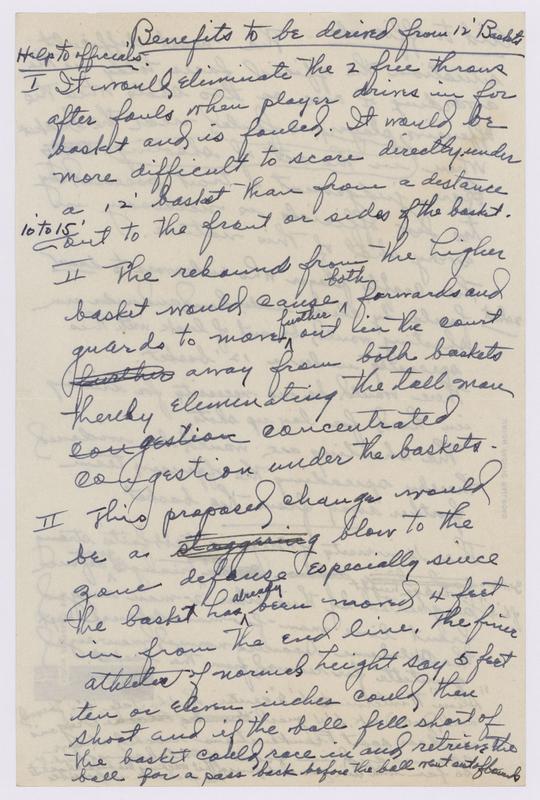 Benefits to be derived from 12' Baskets
Help to officials.
I It would eliminate the 2 free throws
after fouls when player drives in for
basket and is fouled. It would be
more difficult to score directly under
a 12' basket than from a distance
10 to 15' out to the front or sides of the basket.
II The rebound from the higher
basket would cause both forwards and
guards to move further out in the court
further away from both baskets
thereby eleminating the tall man
congestion concentrated
congestion under the baskets.
II This proposed change would
be a staggering blow to the
zone defense especially since
the basket has already been moved 4 feet
in from the end line. The finer
athlete of normal height say 5 feet
ten or eleven inches could then
shoot and if the ball fell short of
the basket could race in and retrieve the
ball for a pass back before the ball went out of bounds